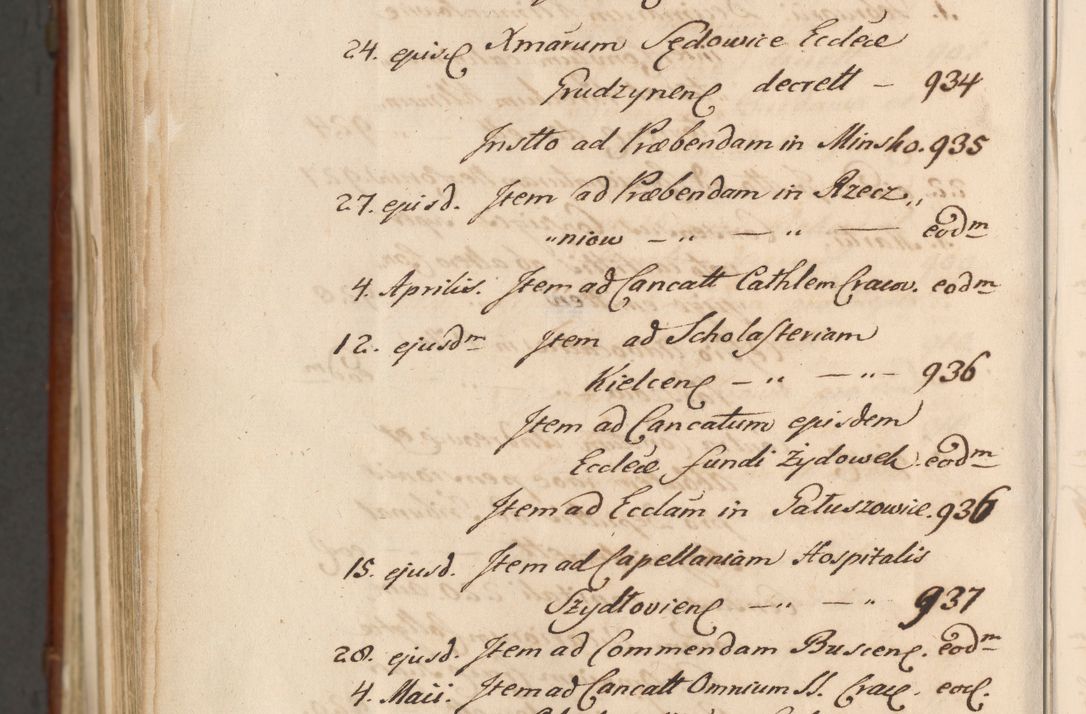 24. episd Xmarum Sędowice Ecclæe
Grudzynen decrett — 934
Instto ad Præbendam in Minsko. 935
27. episd. Item ad Præbendam in Rzecz„
„niow — „ — „ — eodm
4. Aprilis. Item ad Cancatt Cathlem Cracov. eodm
12. ejusdm Item ad Scholasteriam
Kielcen — „ — „ — 936
Item ad Cancatum episdem
Ecclæe fundi Żydowek. eodm
Item ad Ecclam in Pałuszowice. 936
15. ejusd. Item ad Capellaniam Hospitalis
Szydłovien — „ — „ 937
28. ejusd. Item ad Commendam Buscen. eodm
4. Maii. Item ad Cancatt Omnium SS. Crac. eod.